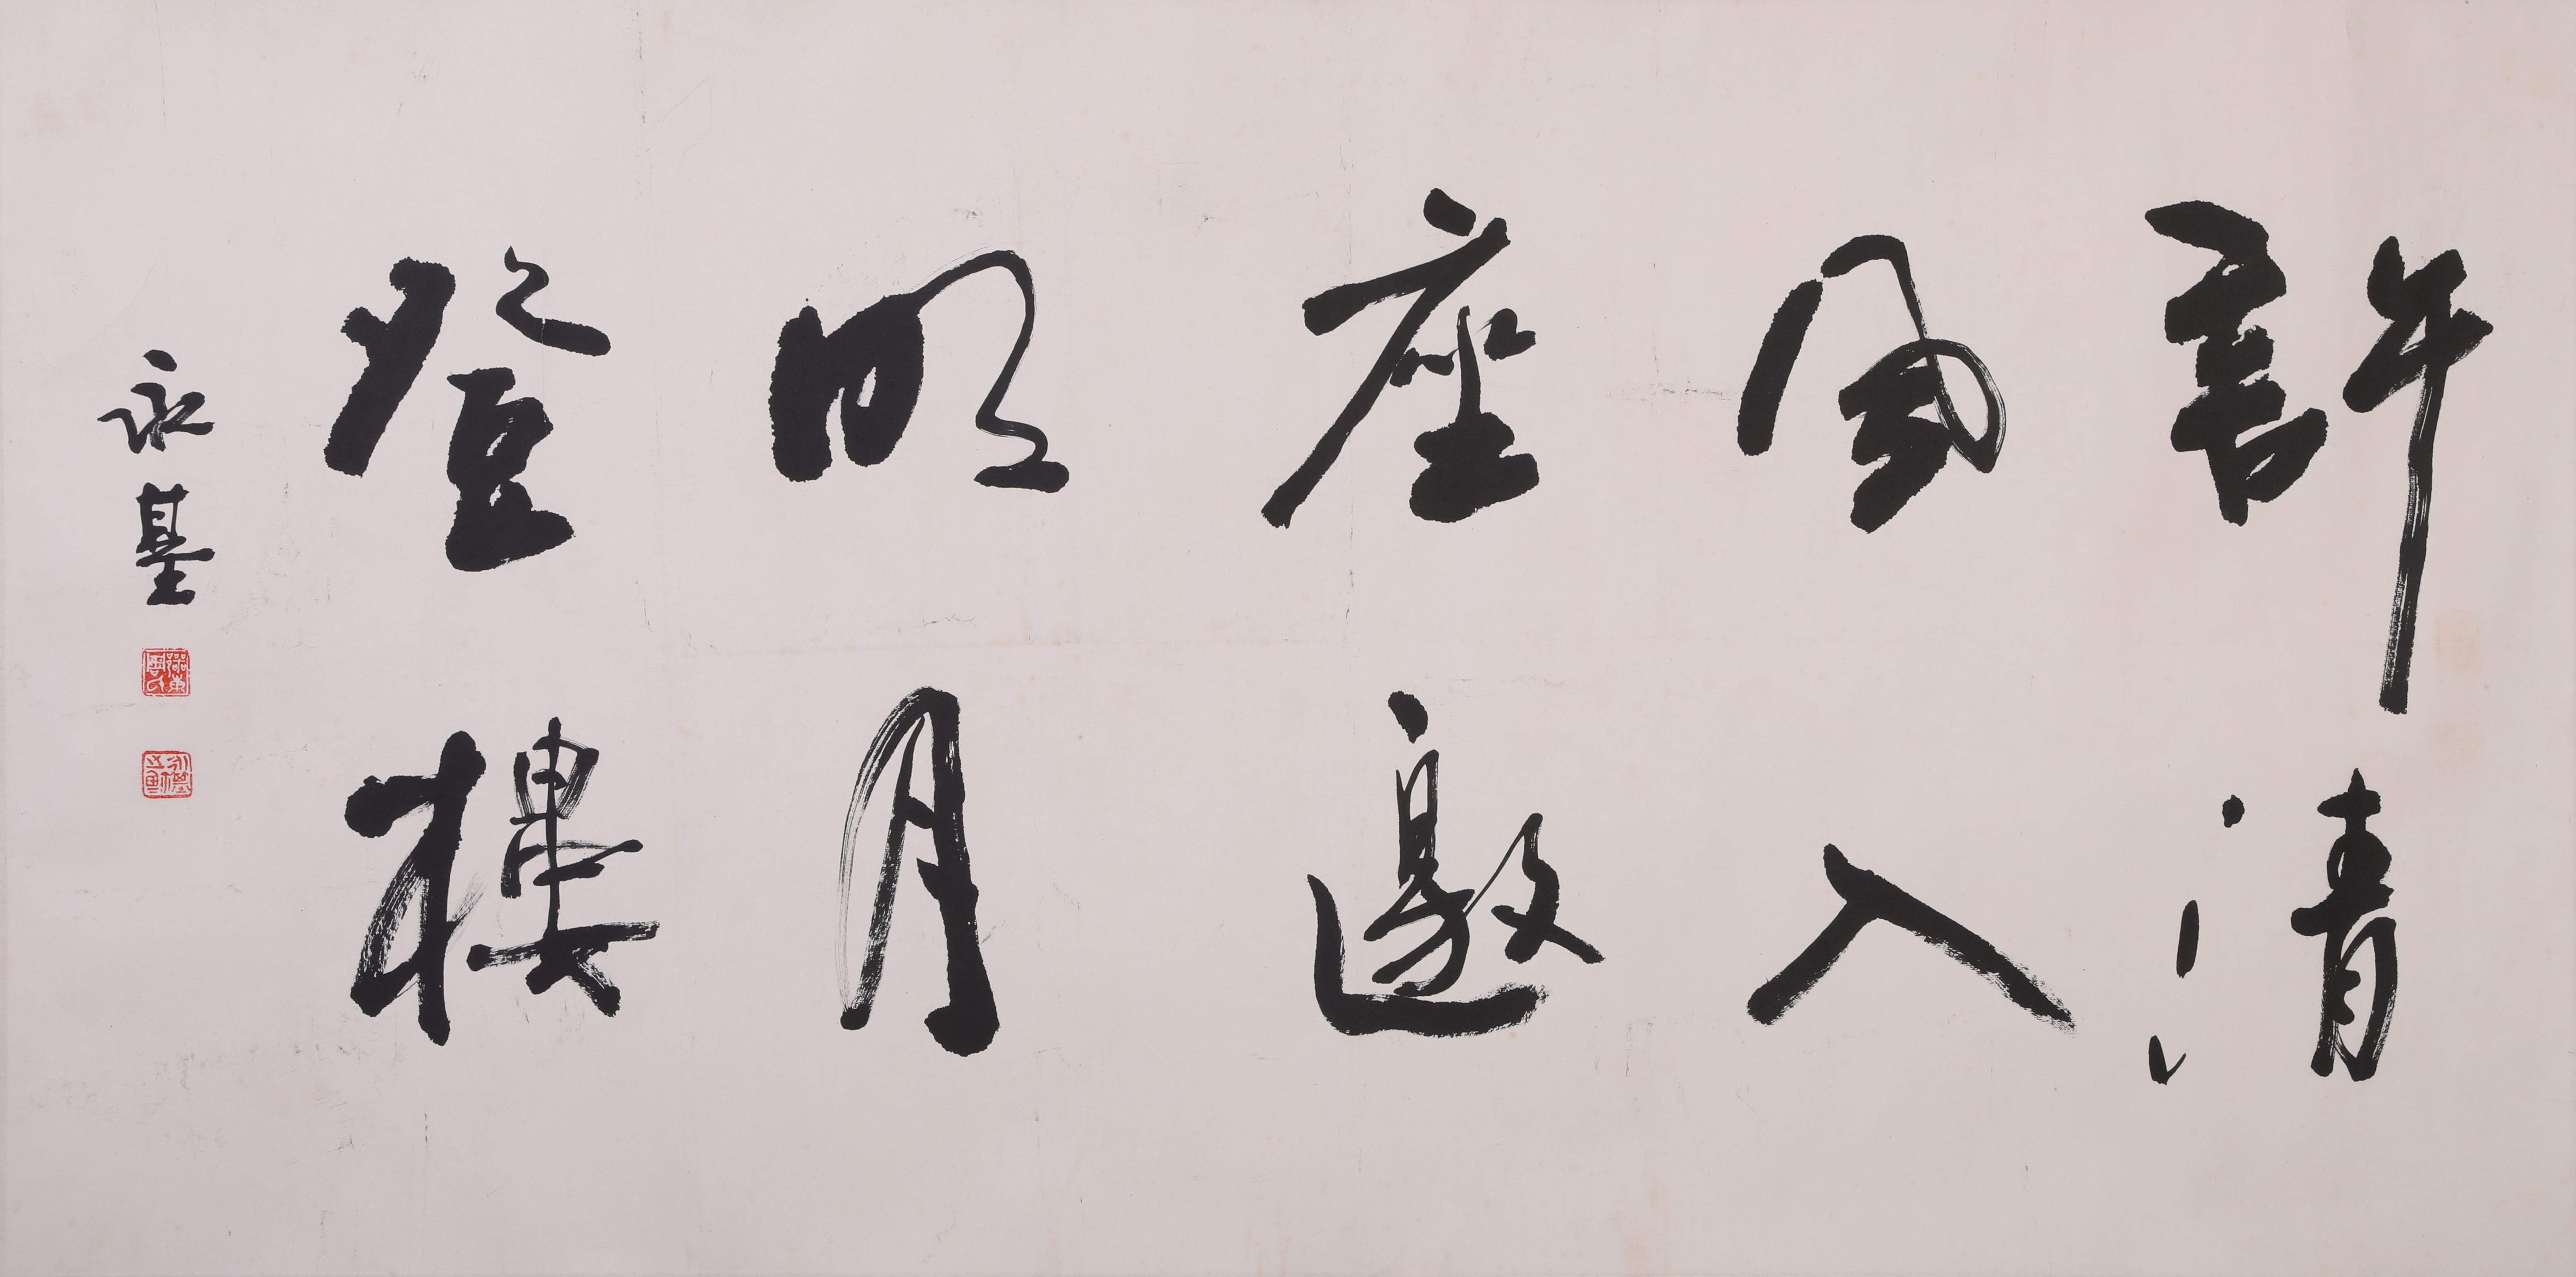 許清
風入
座邀
明月
登樓
永基